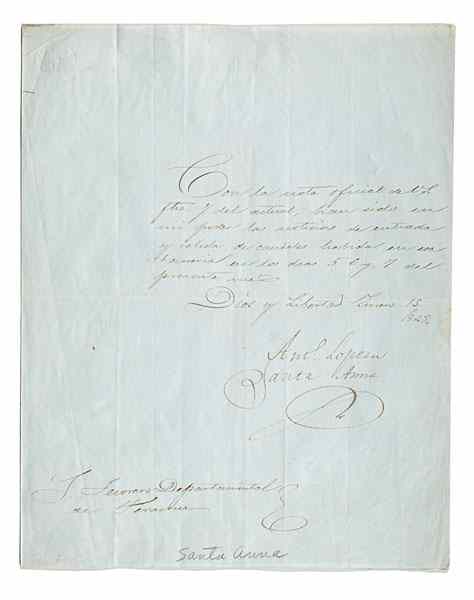 Con la nota oficial de V.S.
fha 7 del actual, han sido en
mi poder las noticias de entrada
y salida de caudales habida en esa
Tesoreria en los dias 5 6 y 7 del
presente mes.
Dios y Libertad Enero 15
Ant.º Lopez
Santa Anna
S. Tesorero Departamental
de Veracruz
Santa Anna